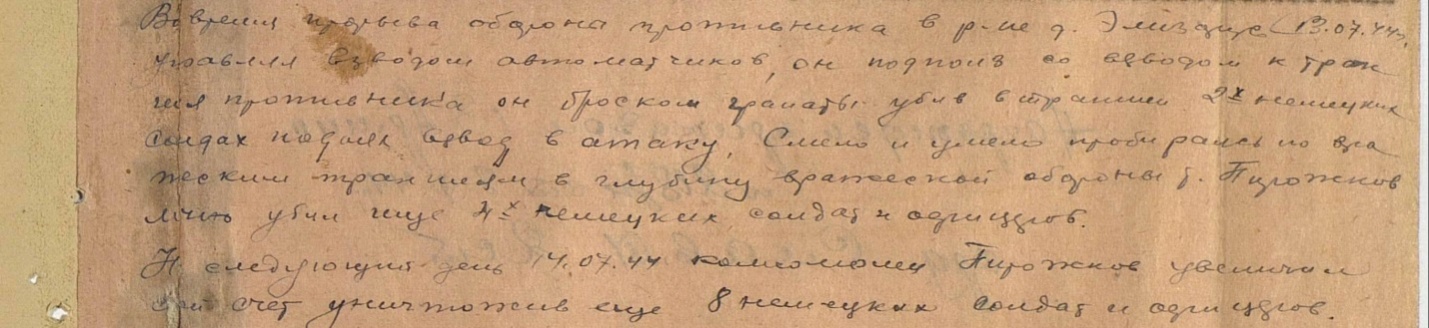 Во время прорыва обороны противника в р-не д. Элизацце (13.07.44),
управляя взводом автоматчиков, он подполз со взводом к тран
шея противника он броском гранаты убив в траншеи 2х немецких
солдах поднял взвод в атаку. Смело и умело пробираясь по вра
жеским траншеям в глубину вражеской обороны т. Пирожков
лично убил еще 4х немецких солдат и офицеров.
На следующий день 14.07.44 комсомолец Пирожков увеличил
свой счет уничтожив еще 8 немецких солдат и офицеров.